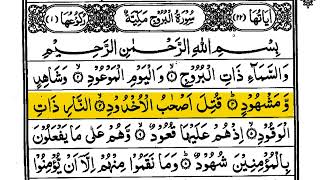 اٰيَاتُهَا (٢٢) سُوْرَةُ الْبُرُوْجِ مَكِّيَّةٌ رُكُوْعُهَا (١)
بِسْمِ اللّٰهِ الرَّحْمٰنِ الرَّحِيْمِ
وَالسَّمَآءِ ذَاتِ الْبُرُوْجِ ۙ وَالْيَوْمِ الْمَوْعُوْدِ ۙ وَشَاهِدٍ
وَّمَشْهُوْدٍ ؕ قُتِلَ اَصْحٰبُ الْاُخْدُوْدِ ۙ النَّارِ ذَاتِ
الْوَقُوْدِ ۙ اِذْ هُمْ عَلَيْهَا قُعُوْدٌ ۙ وَّهُمْ عَلٰى مَا يَفْعَلُوْنَ
بِالْمُؤْمِنِيْنَ شُهُوْدٌ ؕ وَمَا نَقَمُوْا مِنْهُمْ اِلَّآ اَنْ يُّؤْمِنُوْا